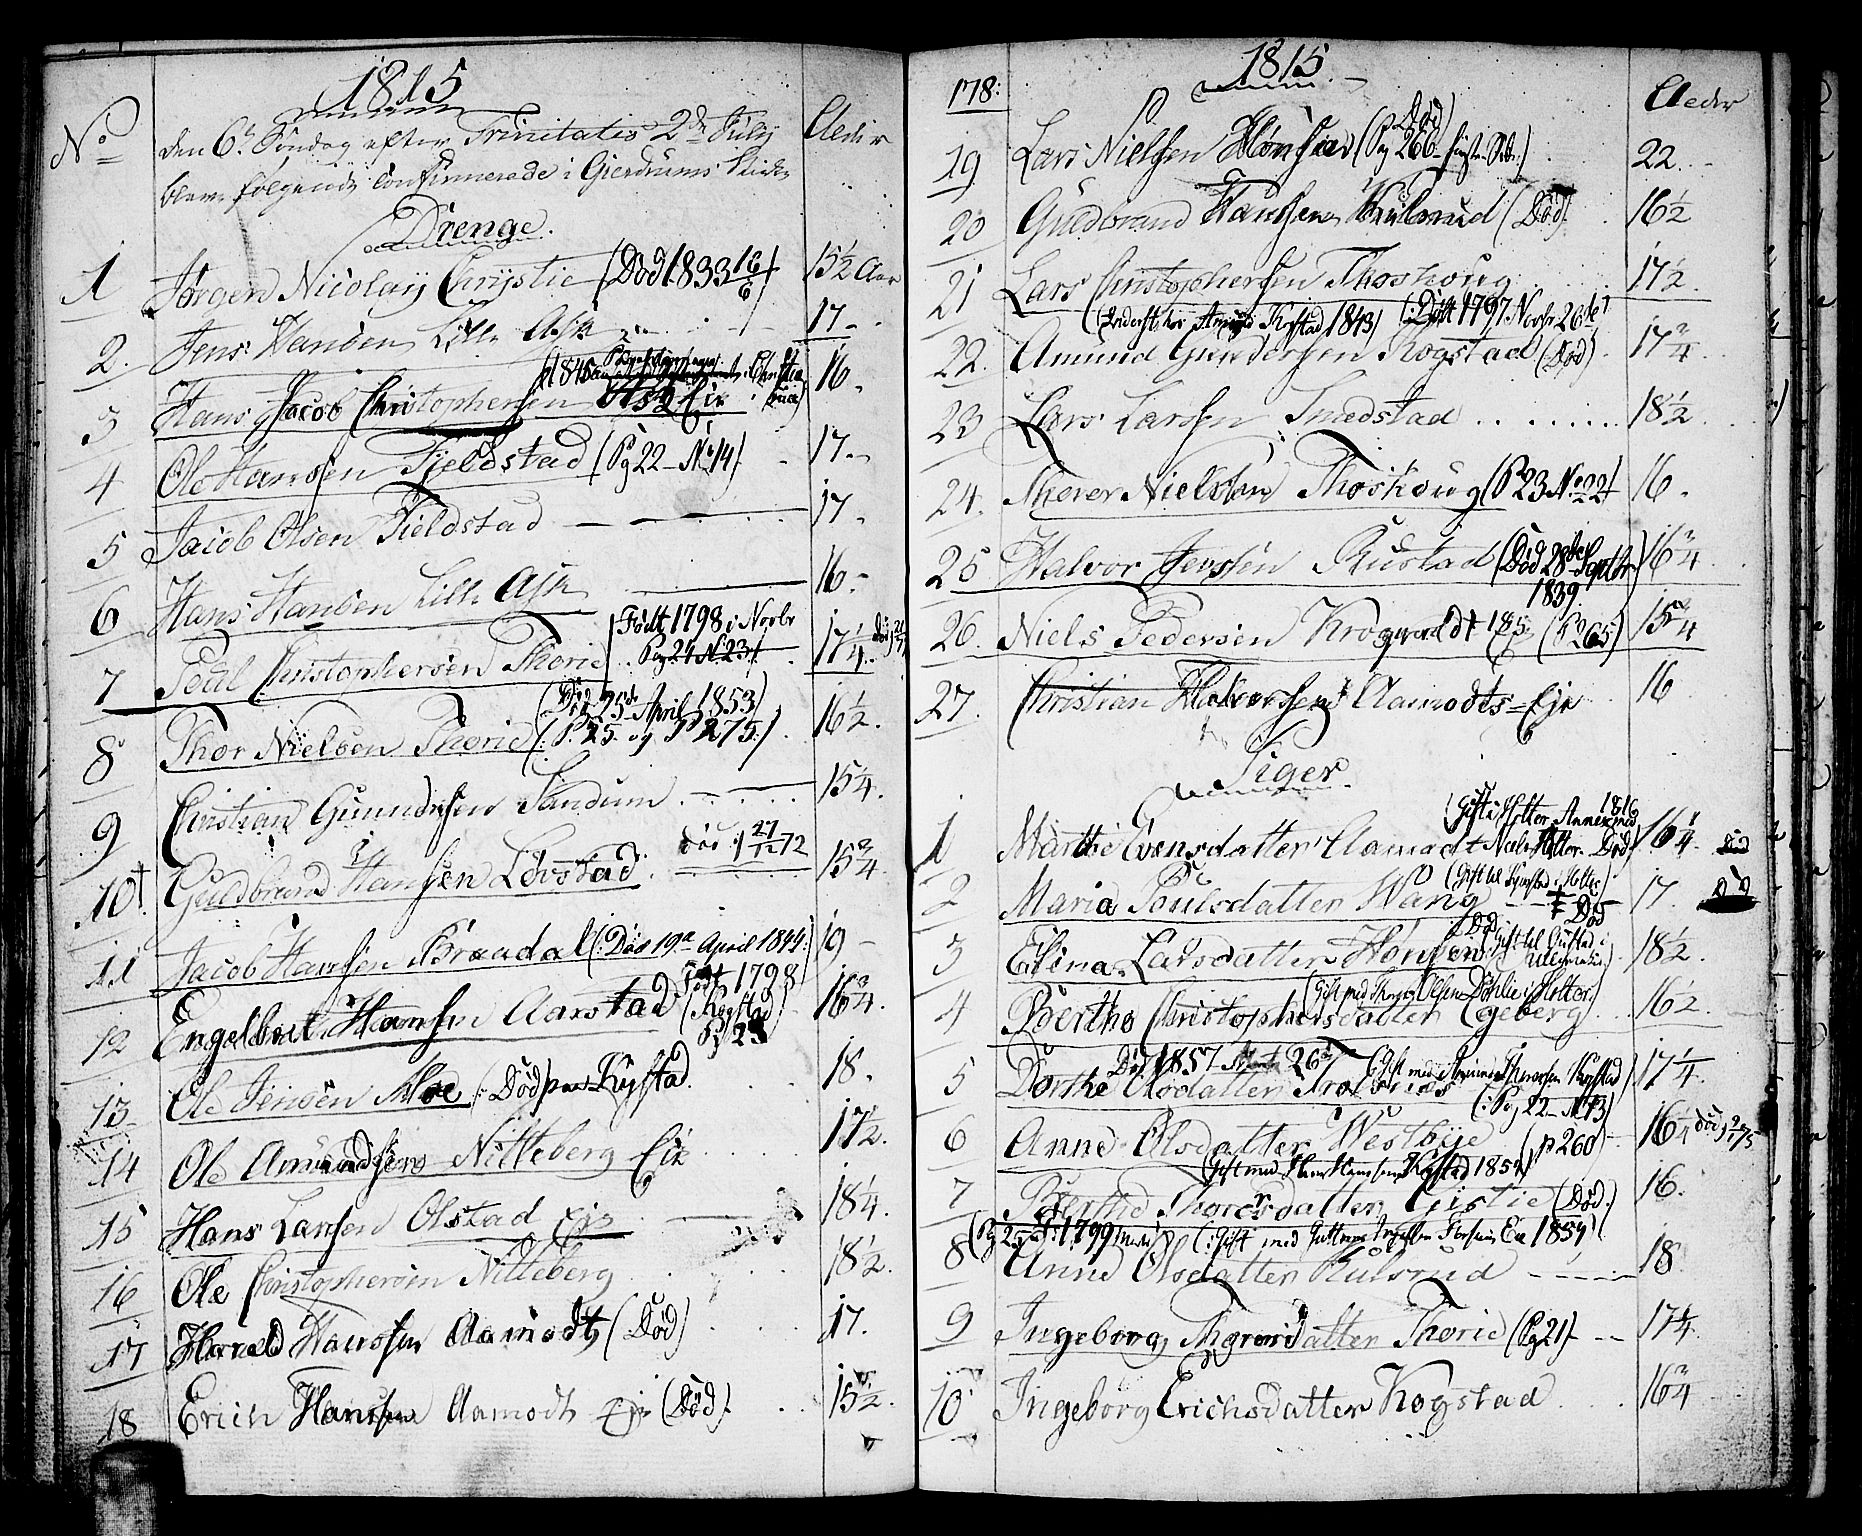 1815
No
Den 6te Søndag efter Trinitatis 2den Julij
Alder
blev følgende Confirmerede i Gierdrums Kirke
Drenge.
1 Jørgen Nicolaij Chrijstie (Død 1833 16/6) 15½ Aar
2. Jens Hansen Lille Ask 17
(1840 i Christiania)
3 Hans Jacob Christophersen Ask Eie 16
4 Ole Hansen Fjeldstad (Pg 22 No 14) 17
5 Jacob Olsen Fieldstad 17
6 Hans Hansen Lille Ask 16
Født 1798 i Novbr
Pag 24 N. 23
7 Poul Christophersen Thorie 17¼ død
(Død 25de April 1853)
8 Thor Nielsen Thorie (: P. 25. og P 275.) 16½.
9 Christian Gunnersen Sandum 15¼.
død 27/12 72
10 † Guldbrand Hansen Løvstad 15¾.
11 Jacob Hansen Braadal (: Død 19de April 1844:) 19
Født 1798
12 Engelbret Hansen Aarstad (Kogstad Pg 23) 16¾.
13 Ole Jensen Moe (: Død paa Kogstad. 18.
14 Ole Amundsen Nitteberg Eie 17½.
15 Hans Larsen Olstad Eie 18¼.
16 Ole Christophersen Nitteberg 18½.
17 Harald Hansen Aamodt (Død) 17.
18 Erich Hansen Aamodt Eie (Død) 15½.
178:
1815.
Alder
(Død)
19 Lars Nielsen Hønsie (Pg 266 22
20 Guldbrand Hansen Kulsrud (Død) 16½
21 Lars Christophersen Thoshoug 17½.
(Inderst hos Amund Kogstad 1843) (Født 1797 Novbr 26de)
22. Amund Gundersen Kogstad (Død) 17¾
23 Lars Larsen Smedstad 18½.
24. Thorer Nielsen Thoshoug (P 23 No 22) 16.
25 Halvor Jensen Rustad (Død 28de Septbr 1839) 16¾
26. Niels Pedersen Krogvaldt Eie (Pg 265) 15¾
27. Christian Halvorsen Aamodts-Eje 16
Piger
(Gift i Holter Annex med 1816
1 Marthe Evensdatter Aamodt Død) 16¼. død
(Gift til i Holter)
2 Maria Poulsdatter Wang Død 17. Død
Død
3 Elina Larsdatter Hønsen (Gift til Rustad i Ullensaker) 18½
(Gift med Olsen Døhlie i Holter)
4 Berthe Christophersdatter Egeberg 16½.
Død 1857 26de (Gift med Amund Thoresen Kogstad)
5 Dorthe Olsdatter 17¼.
(: Pg 22 No 13)
6 Anne Olsdatter Westbye (p 260) 16¼ død
(Gift med Hans Hansen Kogstad 1852)
7 Berthe Thorersdatter Gistie (Død.) 16.
(Pg 25 f: 1799 (: Gift med Guttorm 1854)
8 Anne Olsdatter Kulsrud 18
9 Ingeborg Thorersdatter Thorie (Pg 21) 17¼.
10 Ingeborg Erichsdatter Kogstad 16¾